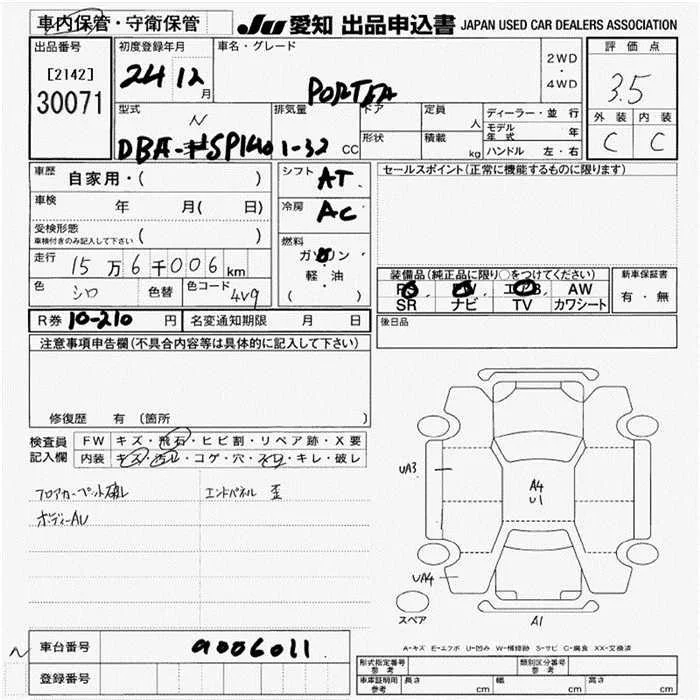 車内保管・守衛保管
JU 愛知 出品申込書 JAPAN USED CAR DEALERS ASSOCIATION
出品番号
[2142]
30071
初度登録年月
24 12 月
車名・グレード
PORTER
2WD
・
4WD
評価点
3.5
外装 内装
C C
型式
N
DBA-
排気量
1-32 CC
ドア
形状
定員
人
積載
kg
ディーラー・並行
モデル年式 年
ハンドル 左・右
車歴 自家用・( )
車検 年 月( 日)
受検形態
車検付きのみ記入して下さい ( )
走行 15万6千006km
色 シロ 色替 色コード 4V9
シフト AT
冷房 AC
燃料
ガソリン
・
軽・油
( )
セールスポイント(正常に機能するものに限ります)
装備品(純正品に限り○をつけてください)
PS PW エアB AW
SR ナビ TV カワシート
新車保証書
有・無
R券 10-210 円 名変通知期限 月 日
後日品
注意事項申告欄(不具合内容等は具体的に記入して下さい)
修復歴 有 (箇所 )
検査員
記入欄
FW キズ・飛石・ヒビ割・リペア跡・X要
内装 キズ・汚レ・コゲ・穴・スレ・キレ・破レ
フロアカーペット破レ エンドパネル 歪
ボディーAU
UA3
A4
U1
UA4
A1
スペア
A-キズ E-エクボ U-凹み W-補修跡 S-サビ C-腐食 XX-交換済
N 車台番号 9006011
登録番号
形式指定番号
参考
類別区分番号
参考
車庫証明用
参考
長さ cm 幅 cm 高さ cm